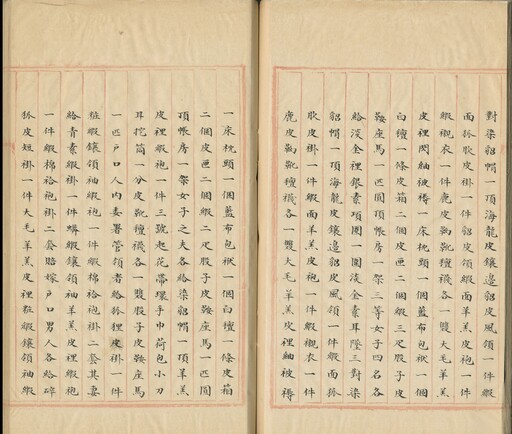 對染貂帽一項海龍皮鑲邊貂皮風領一件緞
面狐肷皮掛一件貂皮領緞面羊羔皮袍一件
緞襯衣一件鹿皮靿靴氊襪各一雙大毛羊羔
皮裡閃紬被褥一床枕頭一個藍布包袱一個
白氊一條皮箱二個皮匣二個緞三疋股子皮
鞍座馬一匹圓頂帳房一架三等女子四名各
給淡金裡銀素項圈一圍淡金素耳墜三對染
貂帽一項海龍皮鑲邊貂皮風領一件緞面狐
肷皮掛一件緞面羊羔皮袍一件緞襯衣一件
鹿皮靿靴氊襪各一雙大毛羊羔皮裡紬被褥
一床枕頭一個藍布包袱一個白氊一條皮箱
二個皮匣二個緞二疋股子皮鞍座馬一匹圓
頂帳房一架女子之夫各給染貂帽一項羊羔
皮裡緞袍一件三號起花帶環手巾荷包小刀
耳挖筒一分皮靴氊襪各一雙股子皮鞍座馬
一匹戶口人內委署管領者給狐狸皮掛一件
粧緞鑲領袖緞袍一件緞棉袷袍掛二套其妻
給青素緞掛一件蟒緞鑲領袖羊羔皮裡緞袍
一件緞棉袷袍掛二套賠嫁戶口男人各給碎
狐皮短掛一件大毛羊羔皮裡粧緞鑲領袖緞